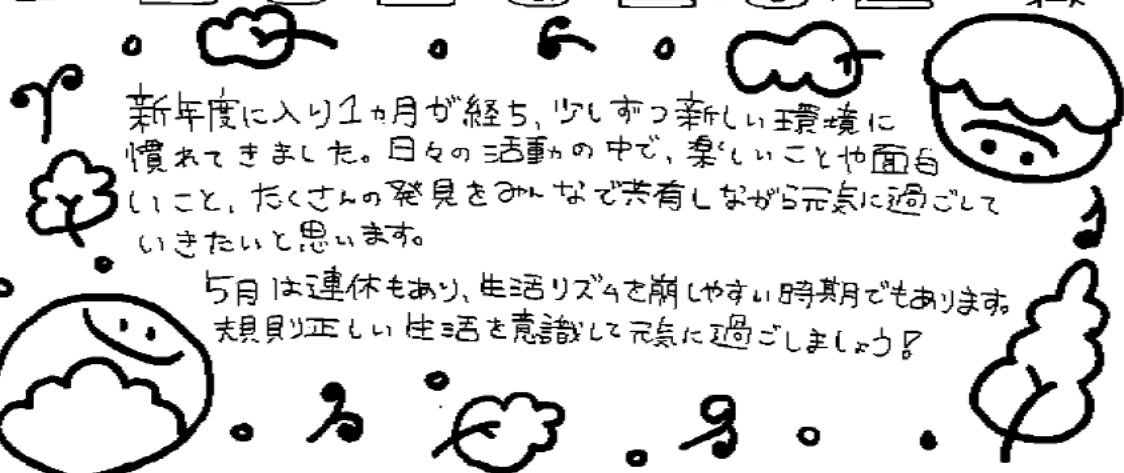 新年度に入り1ヵ月が経ち、少しずつ新しい環境に
慣れてきました。日々の活動の中で、楽しいことや面白
いこと、たくさんの発見をみんなで共有しながら元気に過ごして
いきたいと思います。
5月は連休もあり、生活リズムを崩しやすい時期でもあります。
規則正しい生活を意識して元気に過ごしましょう!